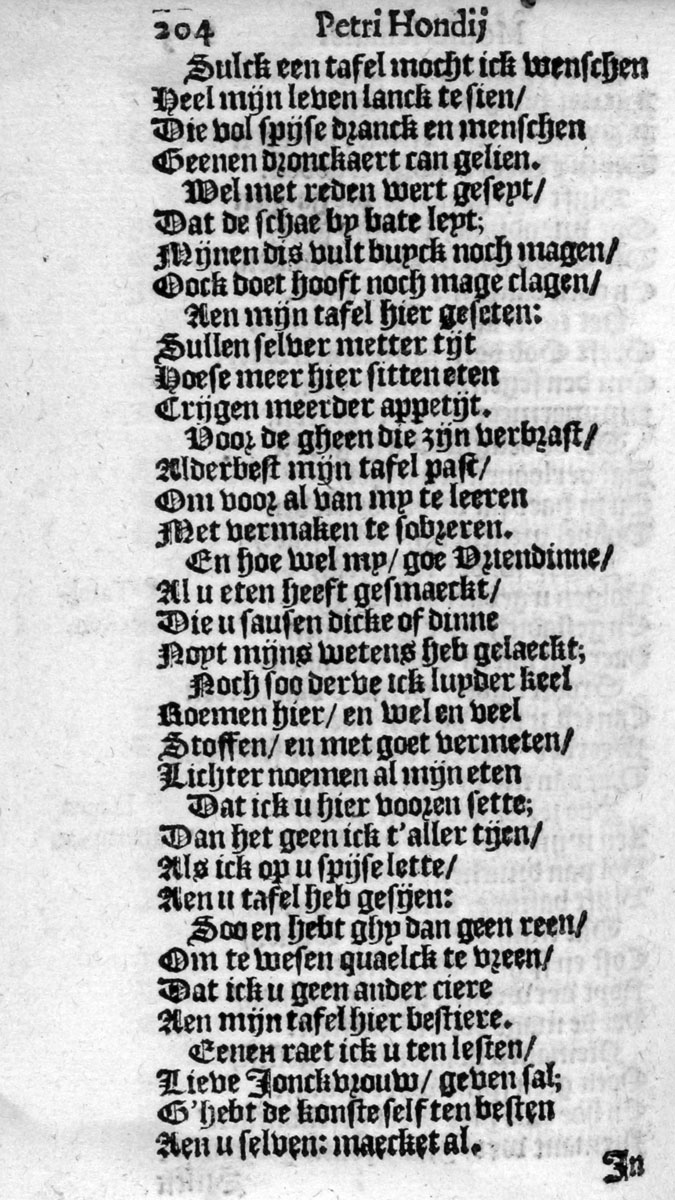 204 Petri Hondij
Sulck een tafel mocht ick wenschen
Heel mijn leven lanck te sien/
Die vol spijse dranck en menschen
Geenen dronckaert can gelien.
Wel met reden wert geseyt/
Dat de schae by bate leyt;
Mijnen dis vult buyck noch magen/
Oock doet hooft noch mage clagen/
Aen mijn tafel hier geseten:
Sullen selver metter tijt
Hoese meer hier sitten eten
Crijgen meerder appetijt.
Voor de gheen die zijn verbrast/
Alderbest mijn tafel past/
Om voor al van my te leeren
Met vermaken te sobreren.
En hoe wel my/ goe Vriendinne/
Al u eten heeft gesmaeckt/
Die u sausen dicke of dinne
Noyt mijns wetens heb gelaeckt;
Noch soo derve ick luyder keel
Roemen hier/ en wel en veel
Stoffen/ en met goet vermeten/
Lichter noemen al mijn eten
Dat ick u hier vooren sette;
Dan het geen ick t'aller tijen/
Als ick op u spijse lette/
Aen u tafel heb gesijen:
Soo en hebt ghy dan geen reen/
Om te wesen quaelck te vreen/
Dat ick u geen ander ciere
Aen mijn tafel hier bestiere.
Eenen raet ick u ten lesten/
Lieve Jonckvrouw/ geven sal;
G'hebt de konste self ten besten
Aen u selven: maecket al.
In